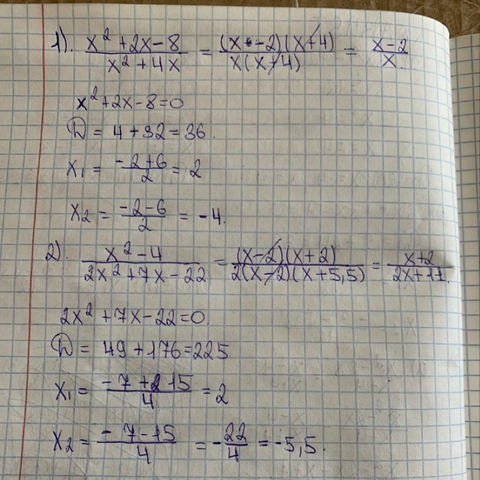 1). x²+2x-8 / x²+4x = (x-2)(x+4) / x(x+4) = x-2 / x.
x²+2x-8=0
D = 4+32=36.
x₁ = -2+6 / 2 = 2
x₂ = -2-6 / 2 = -4.
2). x²-4 / 2x²+7x-22 = (x-2)(x+2) / 2(x-2)(x+5,5) = x+2 / 2x+11.
2x²+7x-22=0.
D = 49+176=225
x₁ = -7+15 / 4 = 2
x₂ = -7-15 / 4 = -22/4 = -5,5.